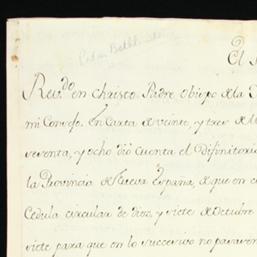 El
Rev.do en Christo Padre Obispo de la
mi Consejo. En Carta de veinte, y tres de
setenta, y ocho dió cuenta el Difinitorio
la Provincia de Nueva España, de que en
Cedula circular de diez, y siete de Octubre
siete para que en lo succesivo no